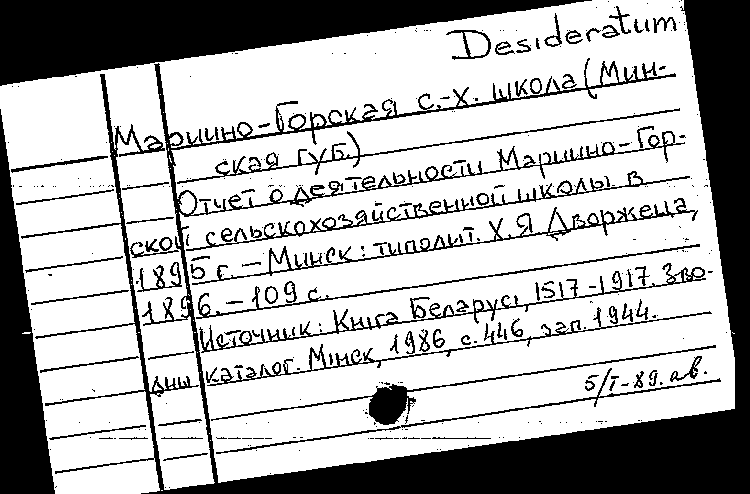 Desideratum
Мариино-Горская с.-х. школа (Мин-
ская губ.)
Отчет о деятельности Мариино-Гор-
ской сельскохозяйственной школы в
1895 г. – Минск: типолит. Х.Я Дворжеца,
1896. – 109 с.
Источник: Кнiга Беларусi, 1517-1917. Зво-
дны каталог. Мiнск, 1986, с. 446, зап. 1944.
5/I-89. ав.